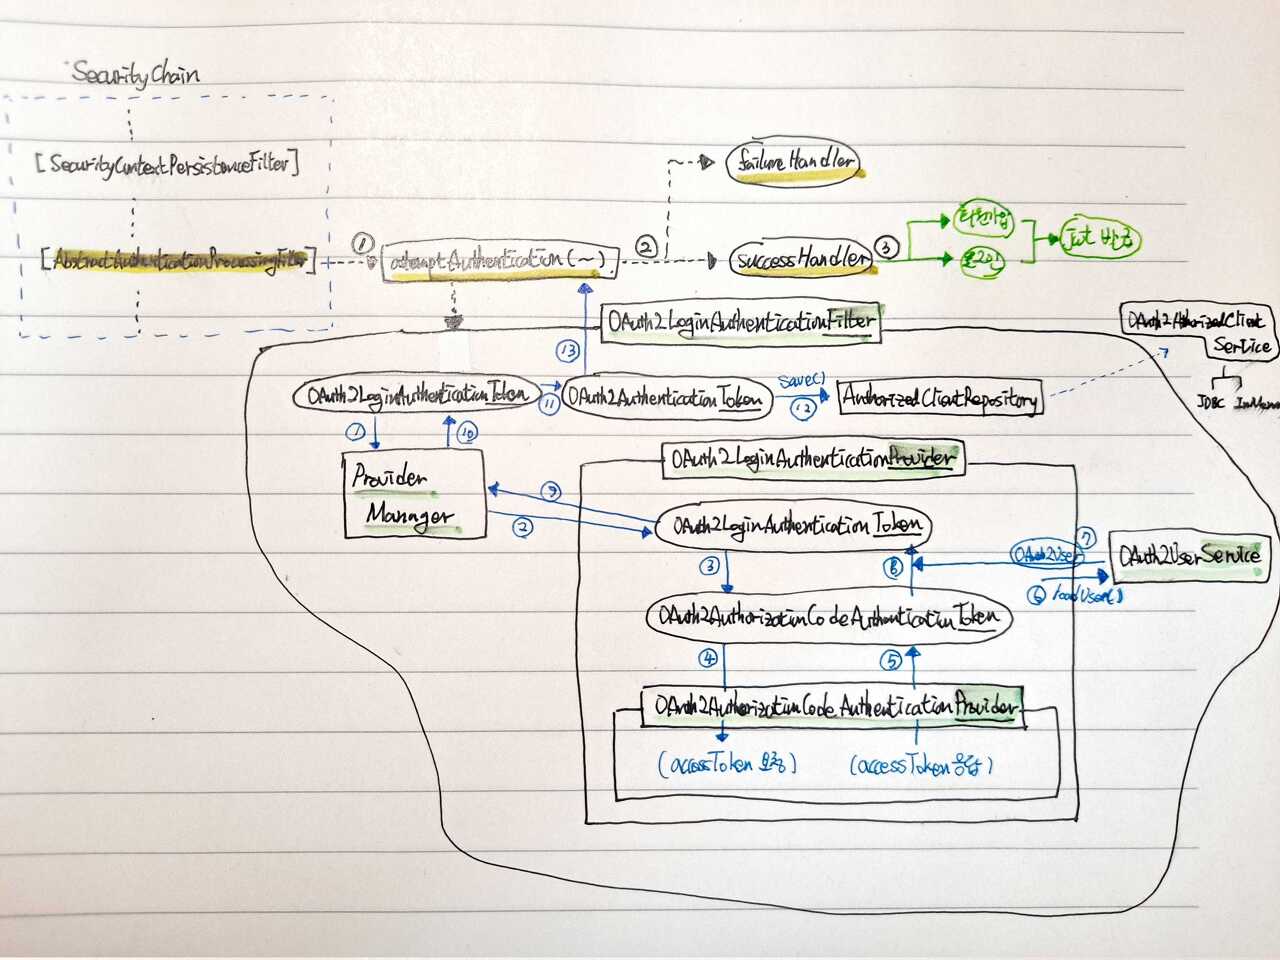 SecurityChain
[SecurityContextPersistenceFilter]
[AbstractAuthenticationProcessingFilter]
①
attemptAuthentication(~)
②
failureHandler
successHandler
③
회원가입
로그인
jwt 발급
OAuth2LoginAuthenticationFilter
OAuth2AthorizedClient
Service
JDBC
⑬
OAuth2LoginAuthentication Token
⑪
OAuth2Authentication Token
save()
⑫
AuthorizedClientRepository
①
⑩
Provider
Manager
⑨
②
OAuth2LoginAuthenticationProvider
OAuth2LoginAuthentication Token
③
⑧
OAuth2User
⑦
OAuth2UserService
⑥ loadUser()
OAuth2AuthorizationCodeAuthentication Token
④
⑤
OAuth2AuthorizationCodeAuthenticationProvider
(accessToken 요청)
(accessToken 응답)